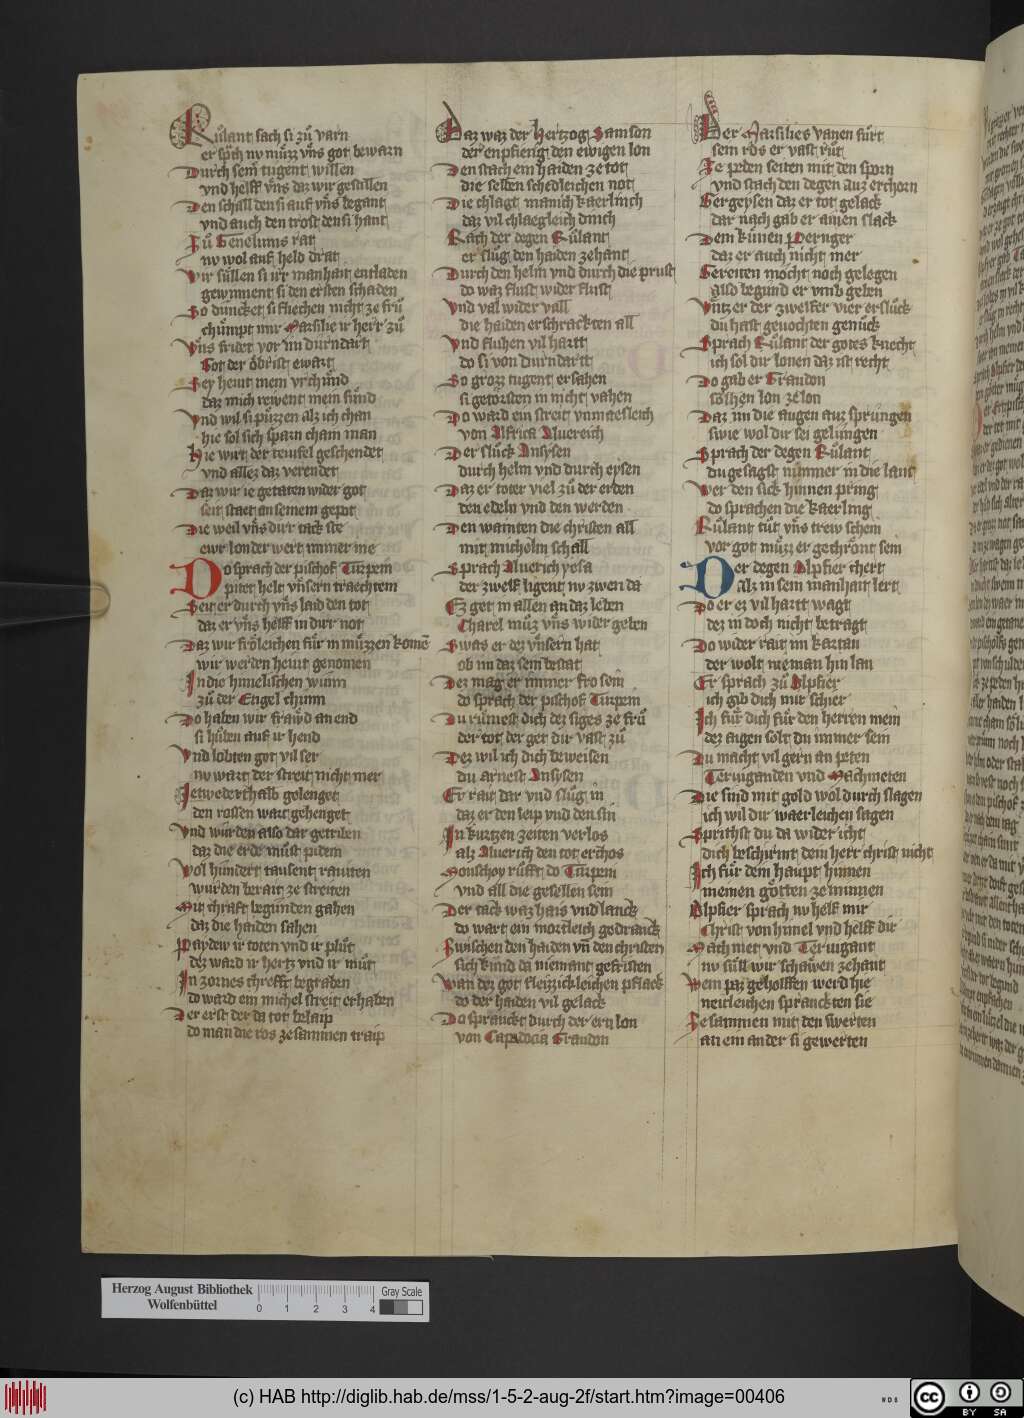 Růlant sach si zů varn
er sp̄ch nv můzz vn̄s got bewarn
Durch sem̄ tugent willen
vnd helff vn̄s daz wir gestillen
Den schall den si auf vn̄s begant
vnd auch den trost den si hant
Zů Genelums rat
nv wol auf held drat
Wir süllen si ur manhait entladen
gewinnent si den ersten schaden
So duncket si fliechen nicht ze frů
chůmpt mir Marsilie ir herr zů
Vn̄s fridet vor im durndart
Got der öbrist ewart
Sey heut mein vrchünd
daz mich rewent mein sünd
Vnd wil si půzzen alz ich chan
hie sol sich sparn cham man
Hie wirt der teufel geschendet
vnd allez daz verendet
Daz wir ie getaten wider got
seit staet an seinem gepot
Die weil vn̄s dirr tack ste
ewr lon der wert immer me
Do sprach der pischof Turpein
pitet helt vn̄sern traechtein
Seit er durch vn̄s laid den tot
daz er vn̄s helff in dirr not
Daz wir fröleichen für in můzzen komē
wir werden heut genomen
In die himelischen wunn
zů der Engel chunn
Do haben wir frawd an end
si hůben auf ir hend
Vnd lobten got vil ser
nv wart der streit nicht mer
Jetwederthalb golenget
den rossen wart gehenget
Vnd wurden also dar getriben
daz die erde můst pidem
Wol hundert tausent rauiten
wurden berait ze streiten
Mit chraft begunden gahen
daz die haiden sahen
Paydew ir toten vnd ir plůt
dez ward ir hertz vnd ir můt
In zornes chrefft begraben
do ward ein michel streit erhaben
Der erst der da tot belaip
do man die ros zesammen traip
Daz waz der Hertzog Samson
der enpfieng den ewigen lon
Den stach ein haiden ze tot
die selben schedleichen not
Die chlagt manich kaerlinch
daz vil chlaegleich dinch
Rach der degen Růlant
er slůg den haiden zehant
Durch den helm vnd durch die prust
do waz flust wider flust
Vnd val wider vall
die haiden erschrackten all
Vnd fluhen vil hartt
do si von durndartt
So grozz tugent ersahen
si getörsten in nicht vahen
Do ward ein streit vnmaesleich
von Affrica Aluereich
Der slůck Ansysen
durch helm vnd durch eysen
Daz er toter viel zů der erden
den edeln vnd den werden
Den wainten die christen all
mit micheln schall
Sprach Aluerich yesa
der zwelf ligent nv zwen da
Ez get in allen an daz leben
Charel můz vn̄s wider geben
Swas er dez vn̄sern hat
ob im daz sem̄ bestat
Dez mag er immer fro sein
do sprach der pischof Turpein
Du rumest dich dez siges ze frů
der tot der get dir vast zů
Dez wil ich dich beweisen
du arnest Ansysen
Er rait dar vnd slůg in
daz er den leip vnd den sin
In kurtzen zeiten verlos
alz Aluerich den tot erchos
Monschoy růfft do Turpein
vnd all die gesellen sein
Der tack waz hais vnd lanck
do wart ein mortleich gedranck
Zwischen den haiden vn̄ den christen
sich kund da niemant gefristen
Wan dez got fleizzickleichen pflack
do der haiden vil gelack
Do spranckt durch der ern lon
von Capadocia Grandon
Der Marsilies vanen fůrt
sein ros er vast růrt
Ze peden seiten mit den sporn
vnd stach den degen auz erchorn
Gergeysen daz er tot gelack
dar nach gab er ainen slack
Dem künen Peringer
daz er auch nicht mer
Gereiten mocht noch gelegen
also begund er vmb geben
Vntz er der zwelfer vier erslůck
du hast geuochten genůck
Sprach Růlant der gotes knecht
ich sol dir lonen daz ist recht
Do gab er Grandon
sölhen lon ze lon
Daz im die augen auz sprungen
swie wol dir sei gelungen
Sprach der degen Růlant
du gesagst nimmer in die lant
Wer den sick hinnen pring
do sprachen die kaerling
Růlant tůt vn̄s trew schein
vor got můzz er gechrönt sein
Der degen Alpfier chert
Alz in sein manhait lert
Do er ez vil hartt wagt
dez in doch nicht betragt
Do wider rait im kartan
der wolt nieman hin lan
Er sprach zů Alpfier
ich gib dich mir schier
Ich für dich für den herren mein
dez aigen solt du immer sein
Du macht vil gern an peten
Teruiganden vnd Machmeten
Die sind mit gold wol durch slagen
ich wil dir waerleichen sagen
Sprichst du da wider icht
dich beschirmt dein herr christ nicht
Ich für dein haupt hinnen
meinen götten ze minnen
Alpfier sprach nv helf mir
Christ von himel vnd helff dir
Machmet vnd Teruigant
nv süll wir schawen zehant
Wem paz geholffen werd hie
neitleichen spranckten sie
Zesammen mit den swerten
an ein ander si gewerten
Herzog August Bibliothek
Wolfenbüttel
0 1 2 3 4
Gray Scale
(c) HAB http://diglib.hab.de/mss/1-5-2-aug-2f/start.htm?image=00406
cc BY SA